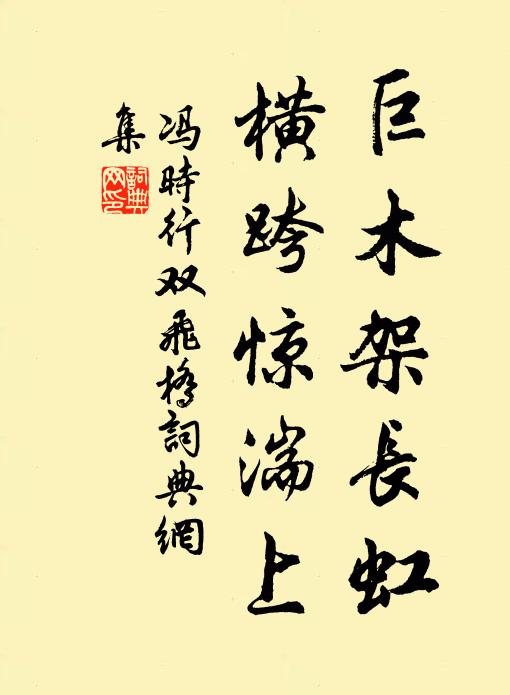 巨木架長虹
横跨惊湍上
冯時行双飛橋詞典網
集
詞典網印